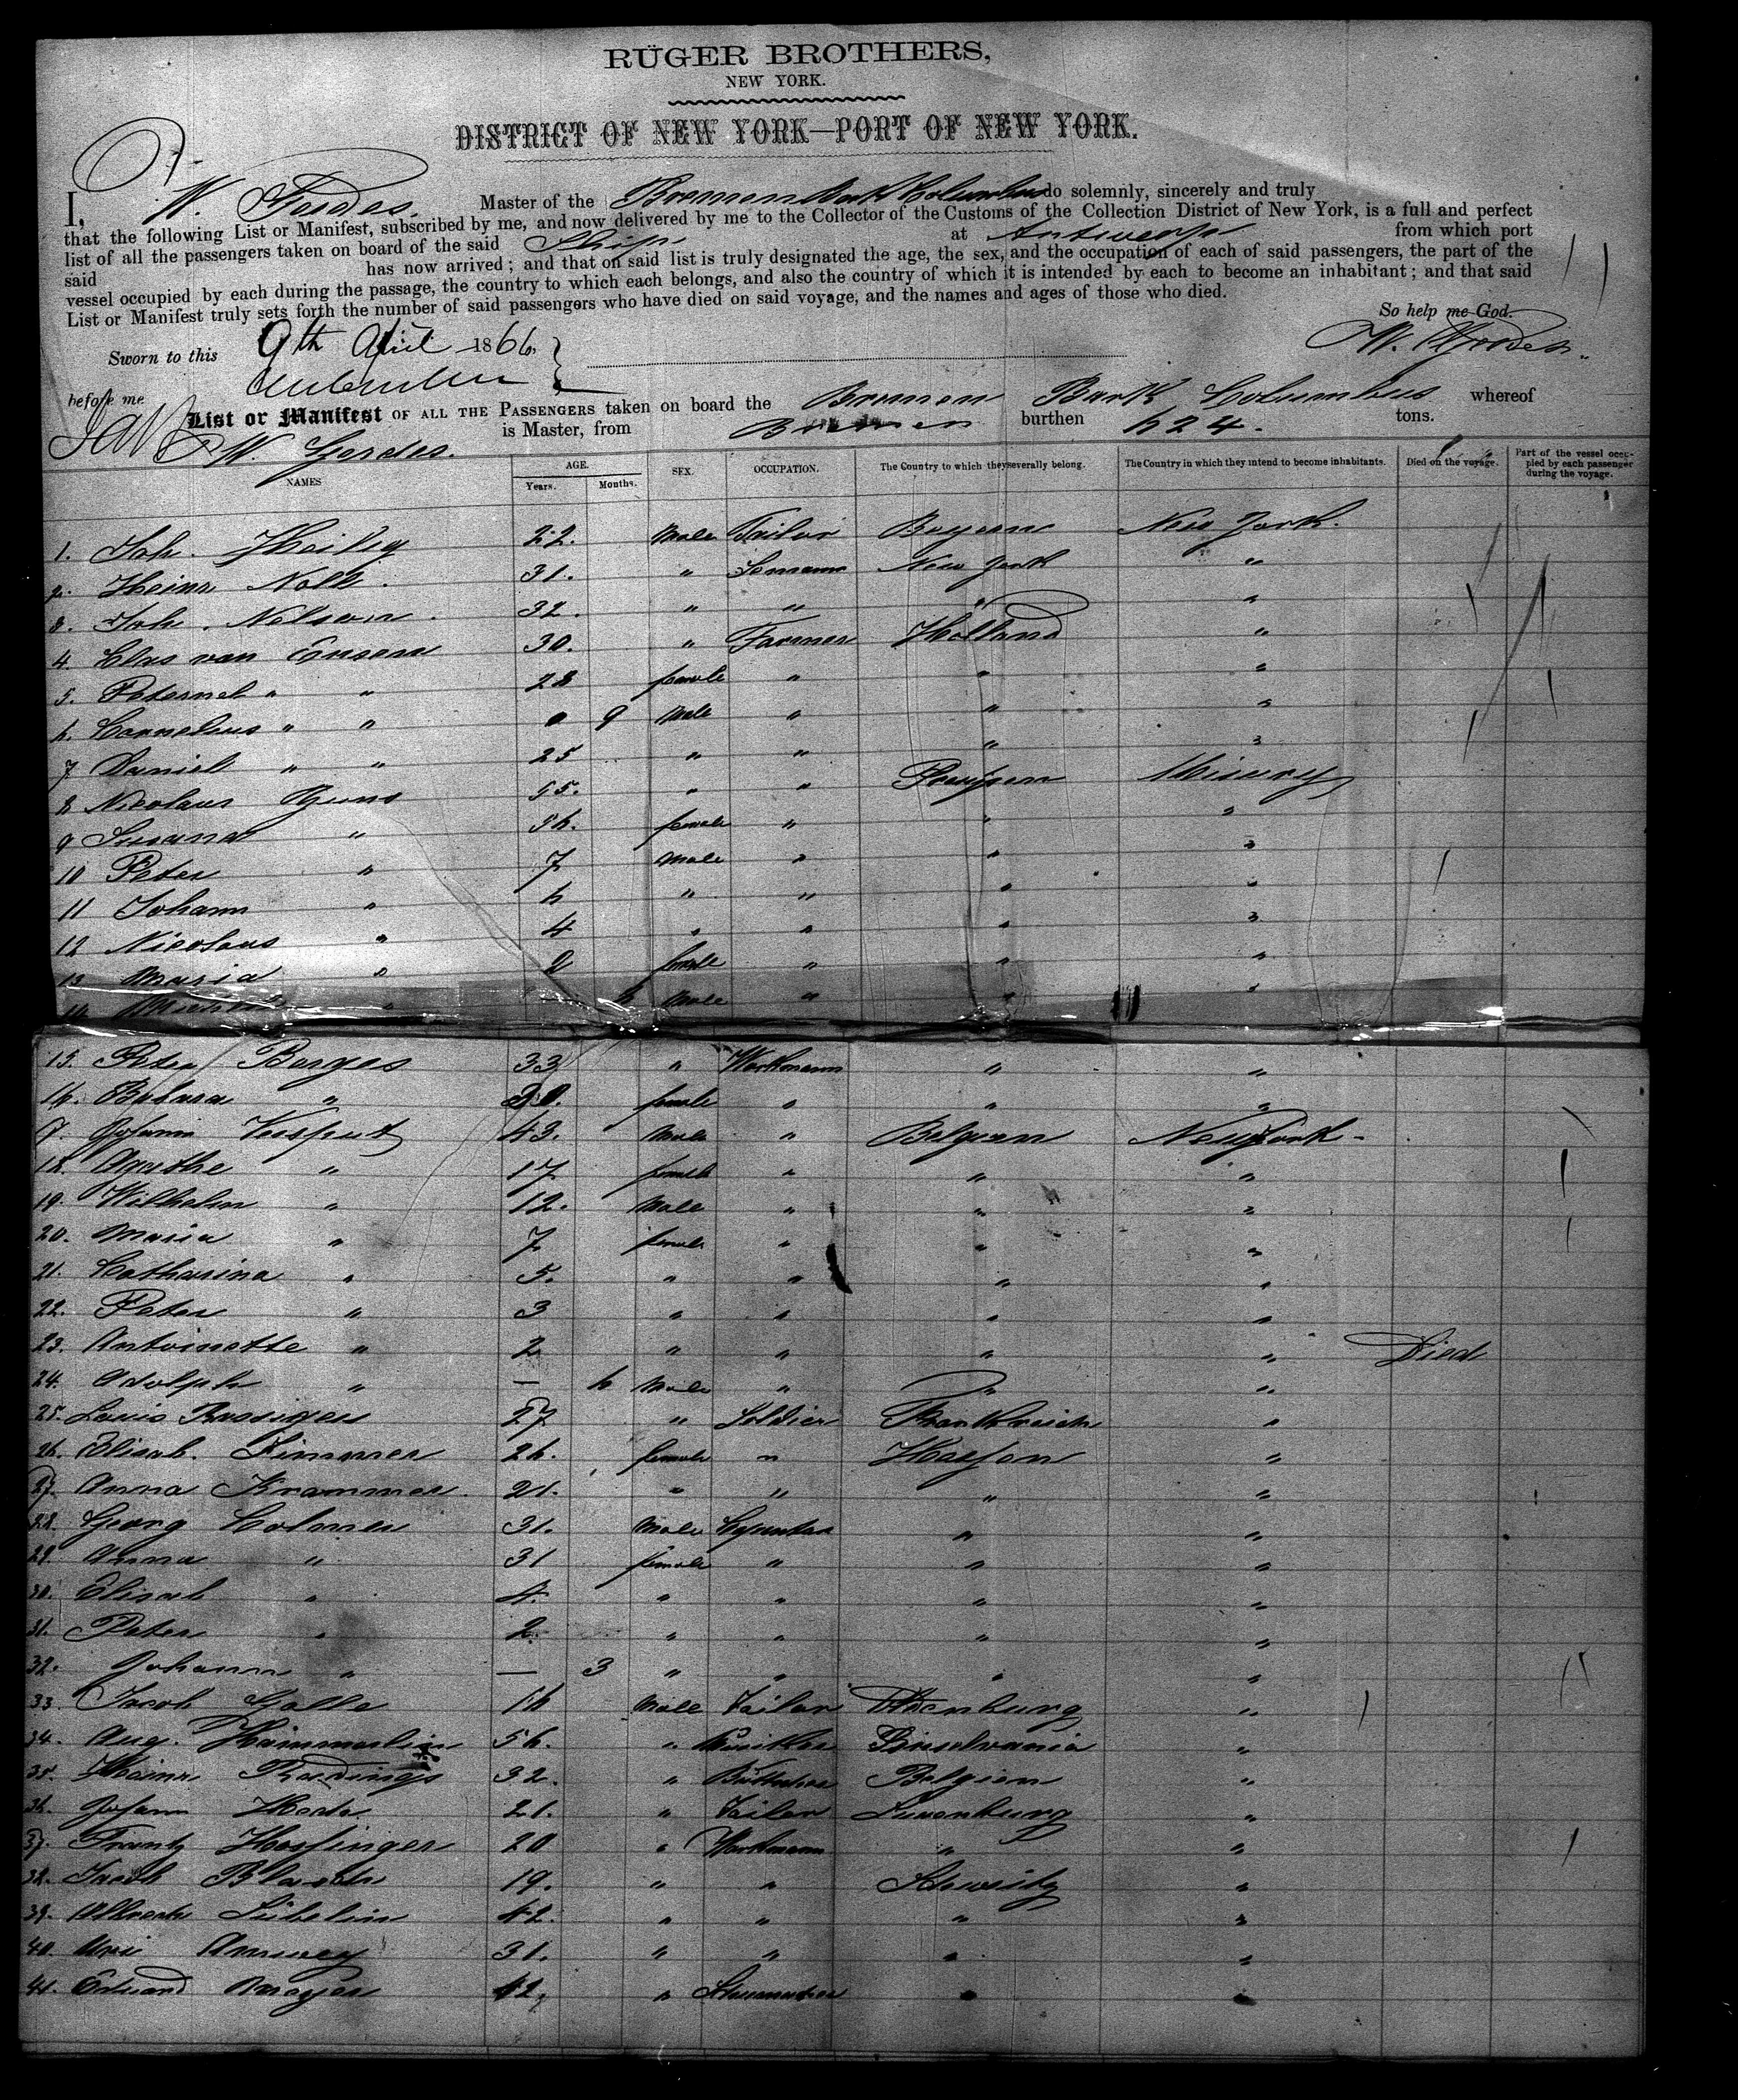 RÜGER BROTHERS,
NEW YORK.
DISTRICT OF NEW YORK—PORT OF NEW YORK.
I, W. Gerdes. Master of the Bremen Bark Columbus do solemnly, sincerely and truly
that the following List or Manifest, subscribed by me, and now delivered by me to the Collector of the Customs of the Collection District of New York, is a full and perfect
list of all the passengers taken on board of the said Ship at Antwerp from which port
said has now arrived; and that on said list is truly designated the age, the sex, and the occupation of each of said passengers, the part of the
vessel occupied by each during the passage, the country to which each belongs, and also the country of which it is intended by each to become an inhabitant; and that said
List or Manifest truly sets forth the number of said passengers who have died on said voyage, and the names and ages of those who died.
So help me God.
Sworn to this 9th April 1866, W. Gerdes.
before me
List or Manifest OF ALL THE PASSENGERS taken on board the Bremen Bark Columbus whereof
W. Gerdes. is Master, from Bremen burthen 624. tons.
NAMES AGE. Years. Months. SEX. OCCUPATION. The Country to which they severally belong. The Country in which they intend to become inhabitants. Died on the voyage. Part of the vessel occupied by each passenger during the voyage.
1. Joh. Heilig 22. Male Tailor Bayern New York.
2. Heinr Noll. 31. " Semann New York "
3. Joh. Nelson. 32. " " " "
4. Clas van 30. " Farmer Holland "
5. Peternel " " 28 female " " "
6. Cornelius " " 9 Male " " "
7 Daniel " " 25 " " " "
8 Nicolaus 55. " " Preußen Misury
9 Susanna " 36. female " " "
10 Peter " 7 Male " " "
11 Johann " 6 " " " "
12 Nicolaus " 4 " " " "
13 Maria " 2 female " " "
14 " 6 Male " " "
15. Peter Borges 33 " Workmann " "
16. Babara " 30. female " " "
17. Johann 43. Male " Belgien New York.
18. Agathe " 17 female " " "
19. Wilhelm " 12. Male " " "
20. Maria " 7 female " " "
21. Catharina " 5. " " " "
22. Peter " 3 " " " "
23. Antoinette " 2 " " " " Died
24. Adolph " — 6 Male " " "
25. Louis 27 " Soldier Frankreich "
26. Elisab. Zimmer 26. female " Hessen "
27. Anna Krammer. 21. " " " "
28. Georg Colmer 31. Male " "
29. Anna " 31 female " " "
30. Elisab " 4. " " " "
31. Peter " 2. " " " "
32. Johann " — 3 " " " "
33. Jacob Galle 16 Male Tailor Oldenburg "
34. Aug. Hämmerlin 56. " "
35. Heinr. Radings 32. " Böttcher Belgien "
36. Johann 21. " Tailor Luxenburg "
37. Frantz Hosfinger 20 " Workmann " "
38. Jacob 19. " " Schweitz "
39. 42. " " " "
40. 31. " " " "
41. Eduard Meyer 42, " " "